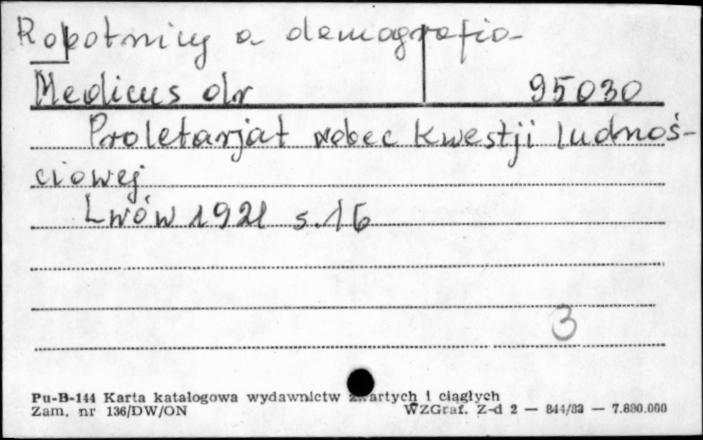 Robotnicy a demografia
Medicus dr 95030
Proletarjat wobec kwestji ludnoś-
ciowej
Lwów 1921 s.16
3
Pu-B-144 Karta katalogowa wydawnictw zwartych i ciągłych
Zam. nr 136/DW/ON WZGraf. Z-d 2 — 844/83 — 7.680.000